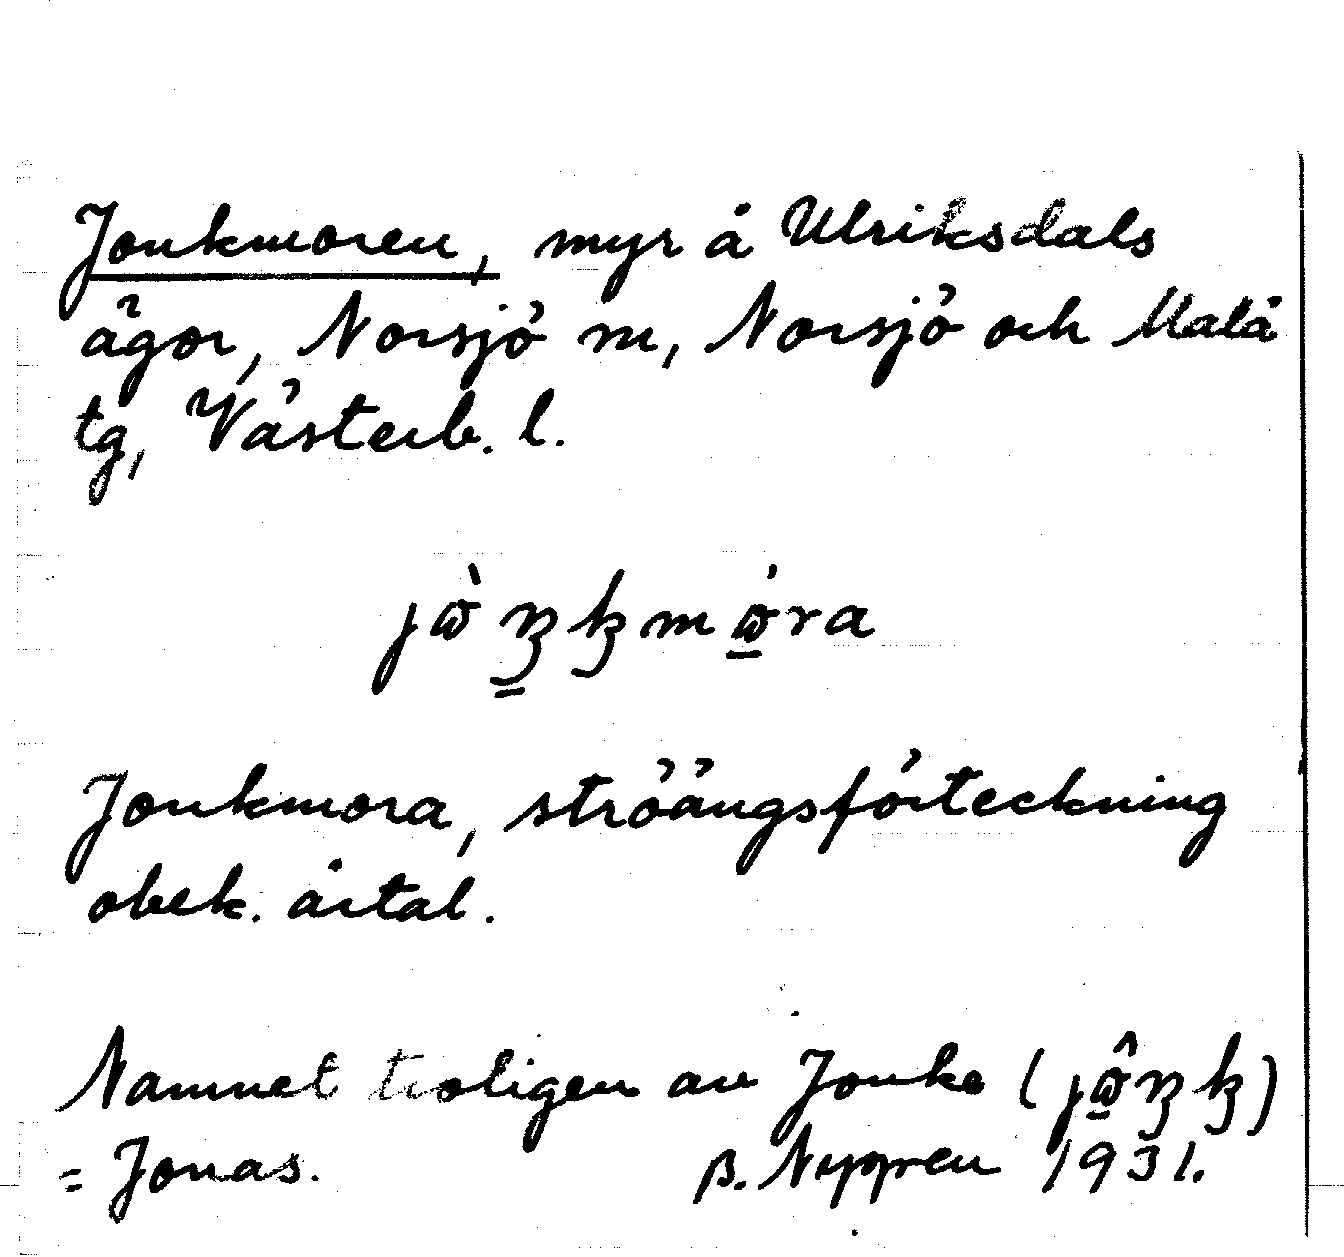 Jonkmoren, myr å Ulriksdals
ägor, Norsjö m, Norsjö och Malå
tg, Västerb. l.
Jonkmora, ströängsförteckning
obek. årtal.
Namnet troligen av Jonke (
= Jonas. B. Neppren 1931.